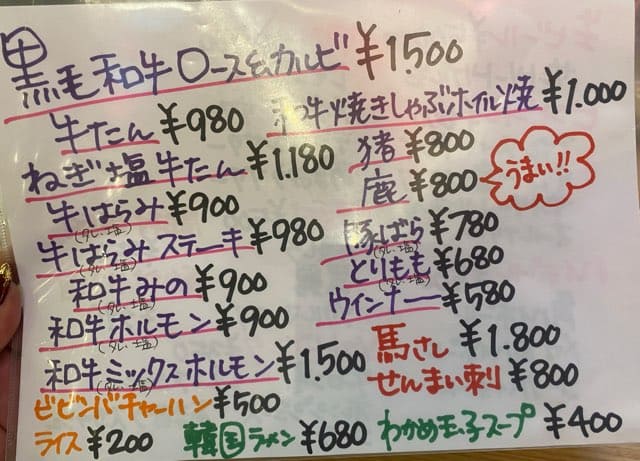 黒毛和牛ロース&カルビ ¥1.500
牛たん ¥980
和牛焼きしゃぶホイル焼 ¥1.000
ねぎ塩牛たん ¥1.180
猪 ¥800
鹿 ¥800
うまい!!
牛はらみ ¥900
(タレ・塩)
豚ばら ¥780
(タレ・塩)
牛はらみステーキ ¥980
(タレ・塩)
とりもも ¥680
(タレ・塩)
和牛みの ¥900
(タレ・塩)
ウインナー ¥580
和牛ホルモン ¥900
(タレ・塩)
馬さし ¥1.800
和牛ミックスホルモン ¥1.500
(タレ・塩)
せんまい刺 ¥800
ビビンバチャーハン ¥500
ライス ¥200
韓国ラーメン ¥680
わかめ玉子スープ ¥400